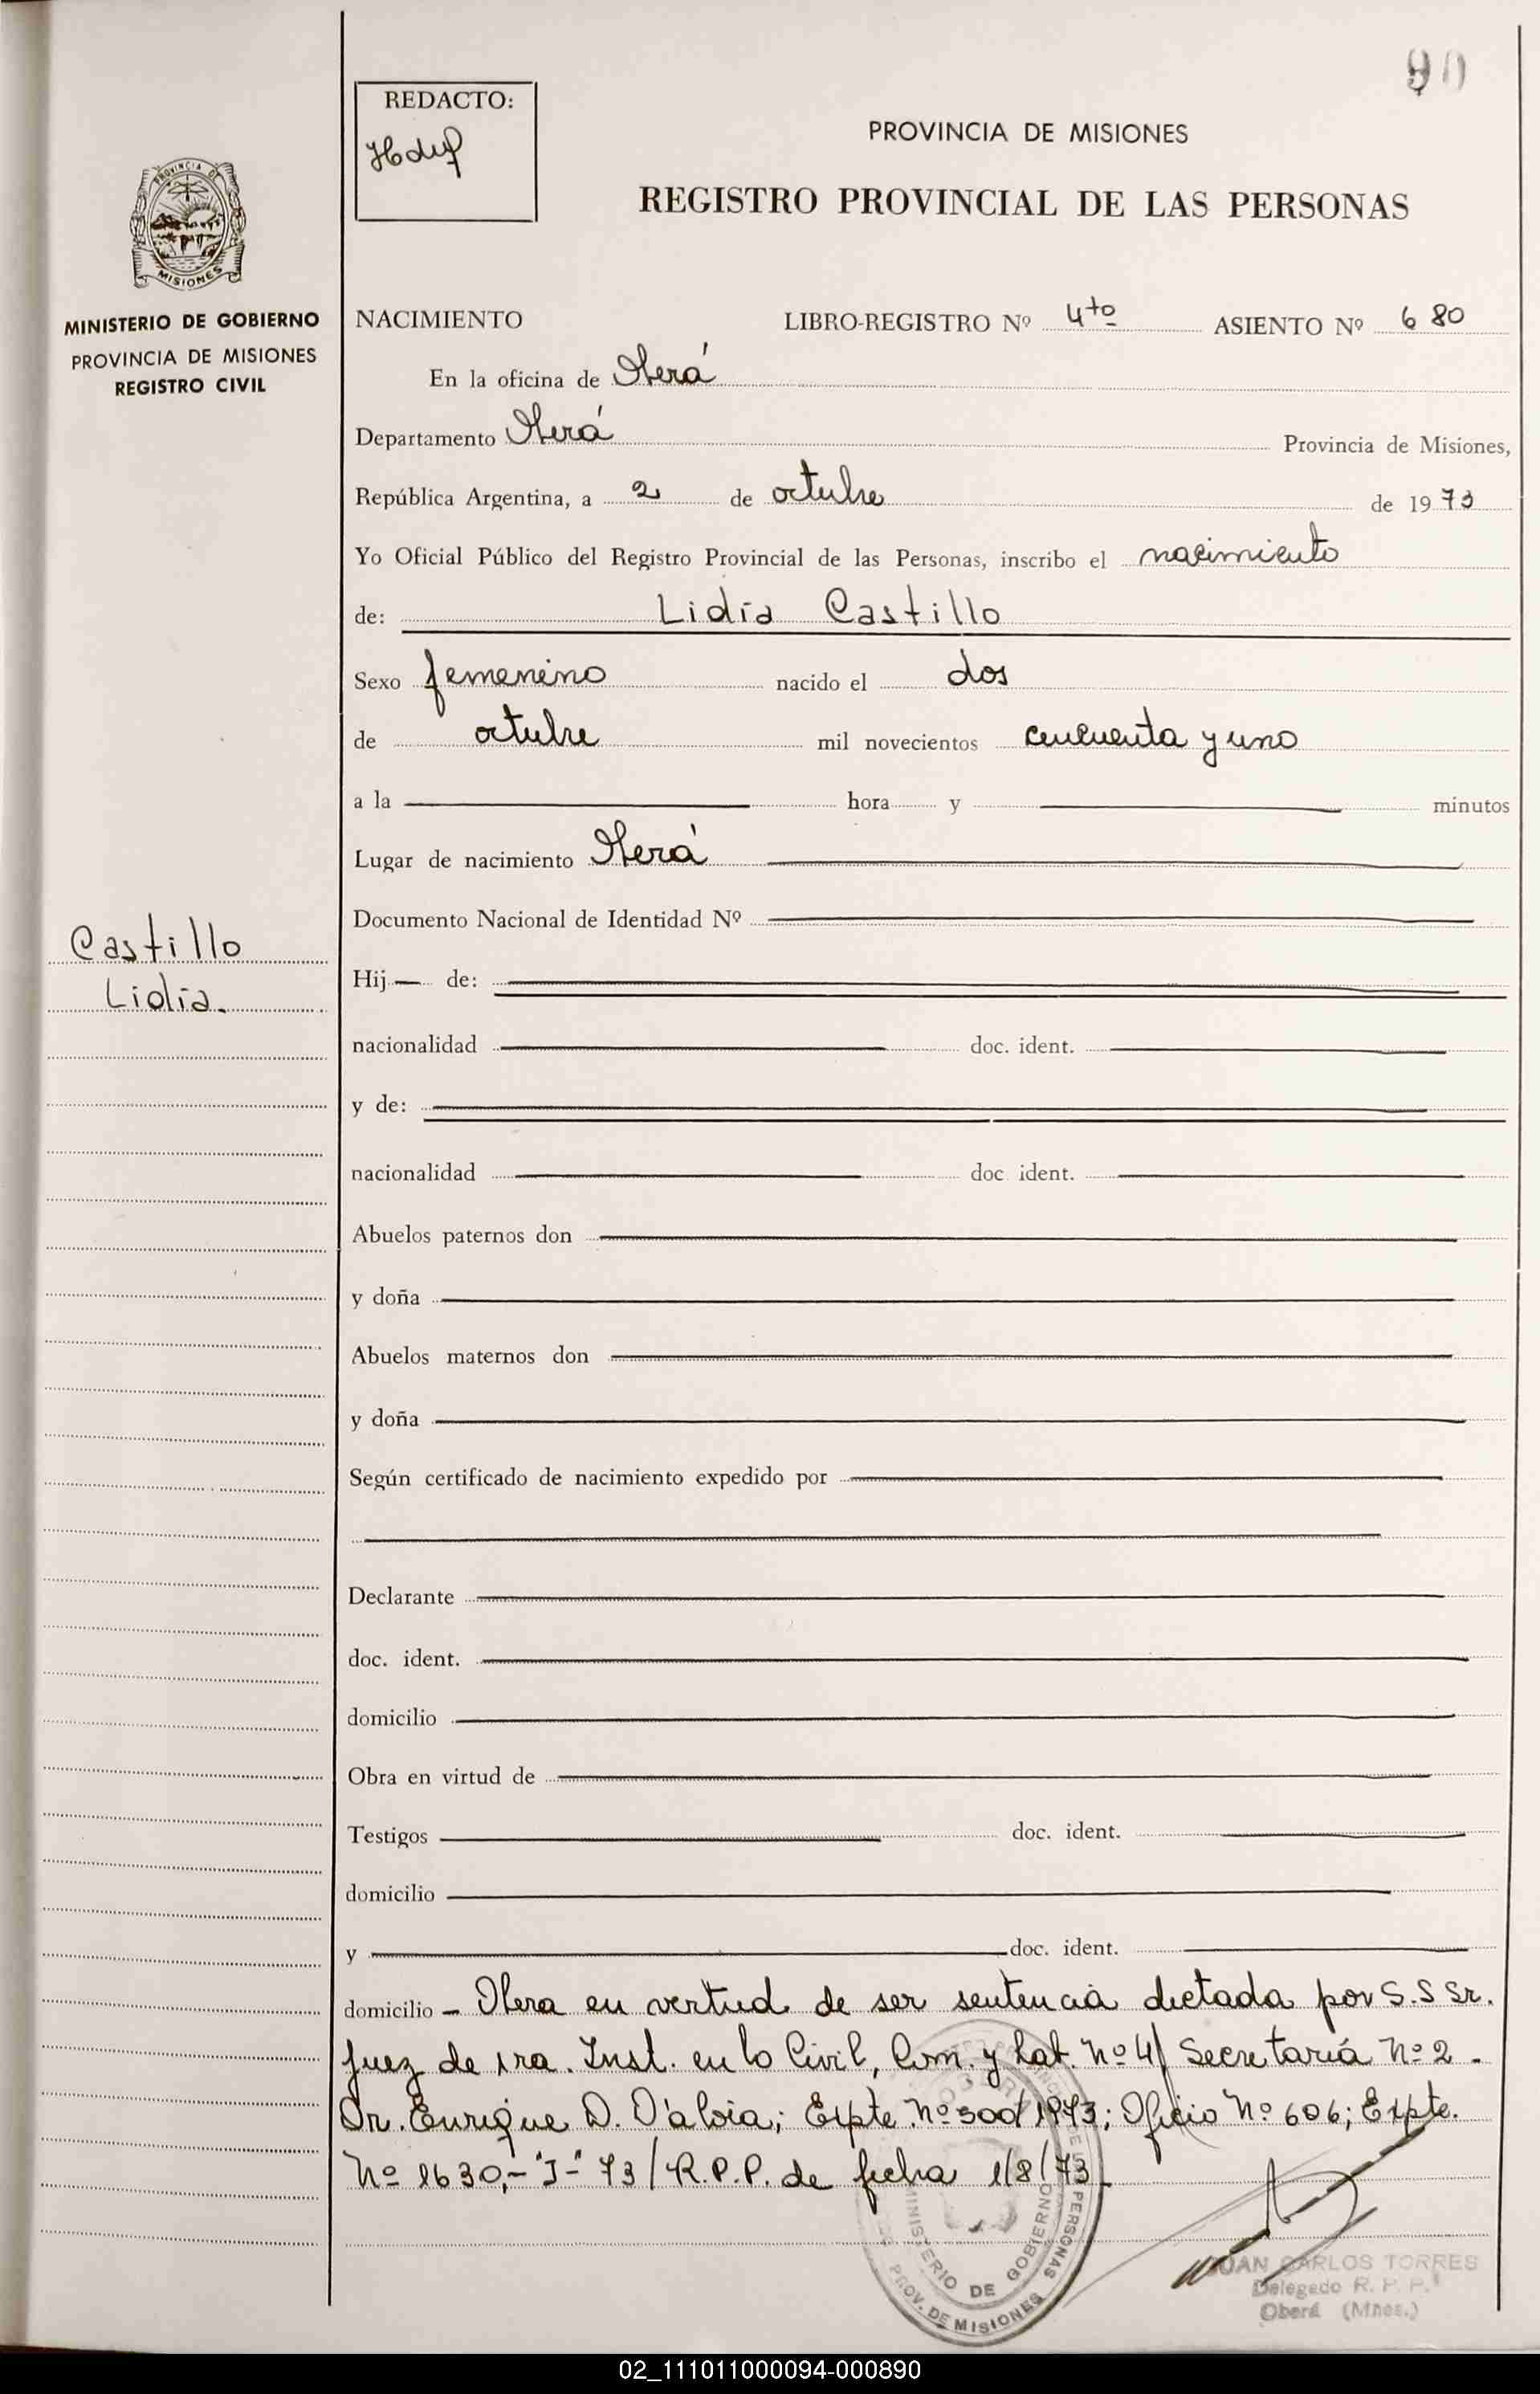 90
REDACTO:
PROVINCIA DE MISIONES
REGISTRO PROVINCIAL DE LAS PERSONAS
PROVINCIA DE
MISIONES
MINISTERIO DE GOBIERNO
PROVINCIA DE MISIONES
REGISTRO CIVIL
NACIMIENTO LIBRO-REGISTRO Nº 4to ASIENTO Nº 680
En la oficina de Oberá
Departamento Oberá Provincia de Misiones,
República Argentina, a 2 de octubre de 1973
Yo Oficial Público del Registro Provincial de las Personas, inscribo el nacimiento
de: Lidia Castillo
Sexo femenino nacido el dos
de octubre mil novecientos cincuenta y uno
a la hora y minutos
Lugar de nacimiento Oberá
Documento Nacional de Identidad Nº
Castillo
Lidia.
Hij de:
nacionalidad doc. ident.
y de:
nacionalidad doc ident.
Abuelos paternos don
y doña
Abuelos maternos don
y doña
Según certificado de nacimiento expedido por
Declarante
doc. ident.
domicilio
Obra en virtud de
Testigos doc. ident.
domicilio
y doc. ident.
domicilio - Obra en virtud de ser sentencia dictada por S.S Sr.
Juez de 1ra. Inst. en lo Civil, Com. y Lab. Nº 4/ Secretaría Nº 2 -
Dr. Enrique D. D'aloia; Expte Nº 300/1973; Oficio Nº 606; Expte.
Nº 1630,-"J-" 73/R.P.P. de fecha 1/8/73
MINISTERIO DE GOBIERNO
PROV. DE MISIONES
DE LAS PERSONAS
JUAN CARLOS TORRES
Delegado R. P. P.
Oberá (Mnes.)
02_111011000094-000890